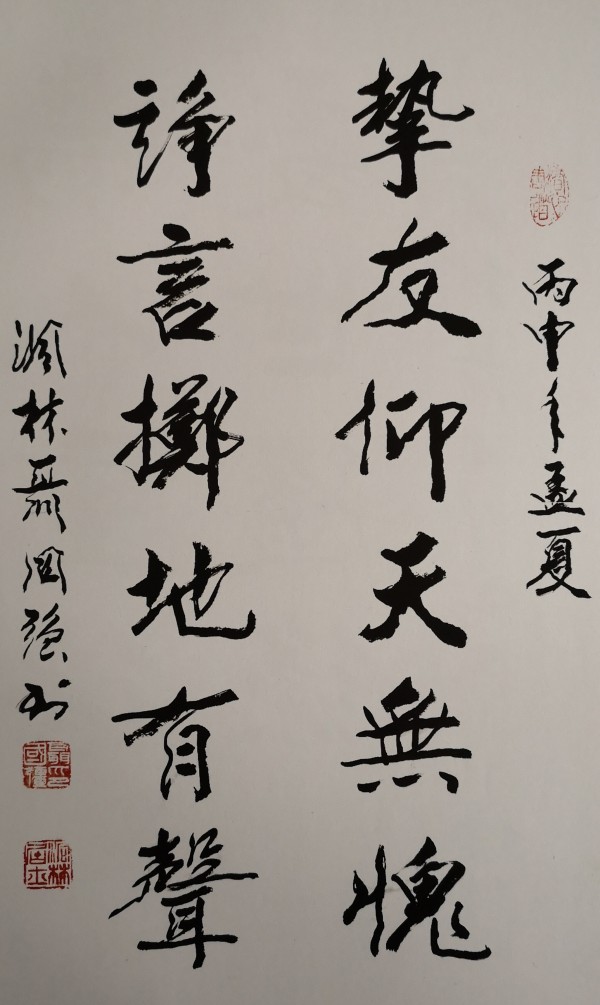 丙申年孟夏
摯友仰天無愧
諍言擲地有聲
林聶國強書